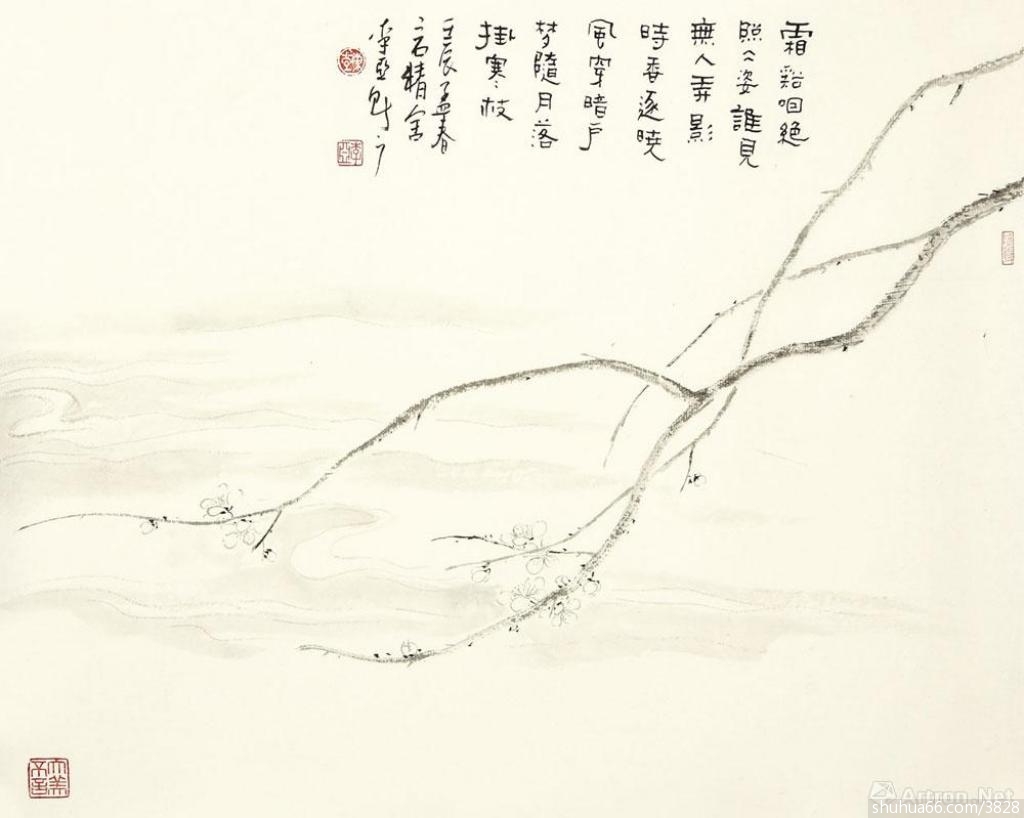 霜谿咽絶
照仌姿誰見
無人弄影
時香逐曉
風穿暗户
梦隨月落
掛寒枝
壬辰孟春
精舍
李亞
Artron.Net
shuhua66.com/3828